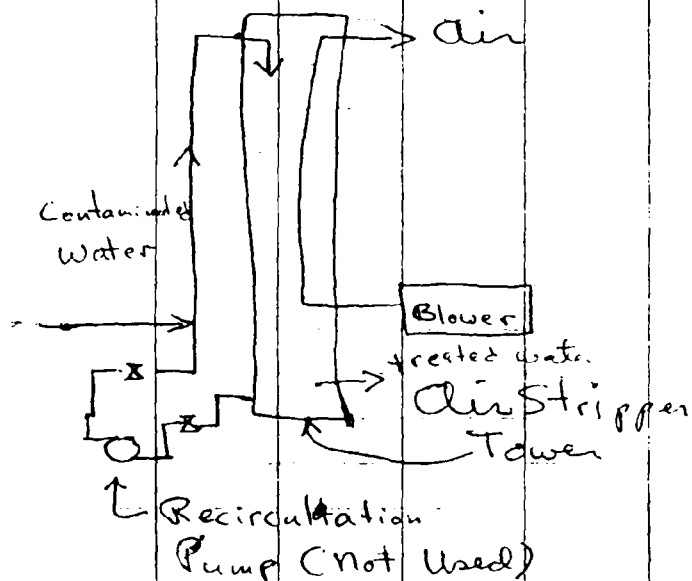 air
Contaminated
Water
Blower
treated water
Air Stripper
Tower
Recircultation
Pump (Not Used)